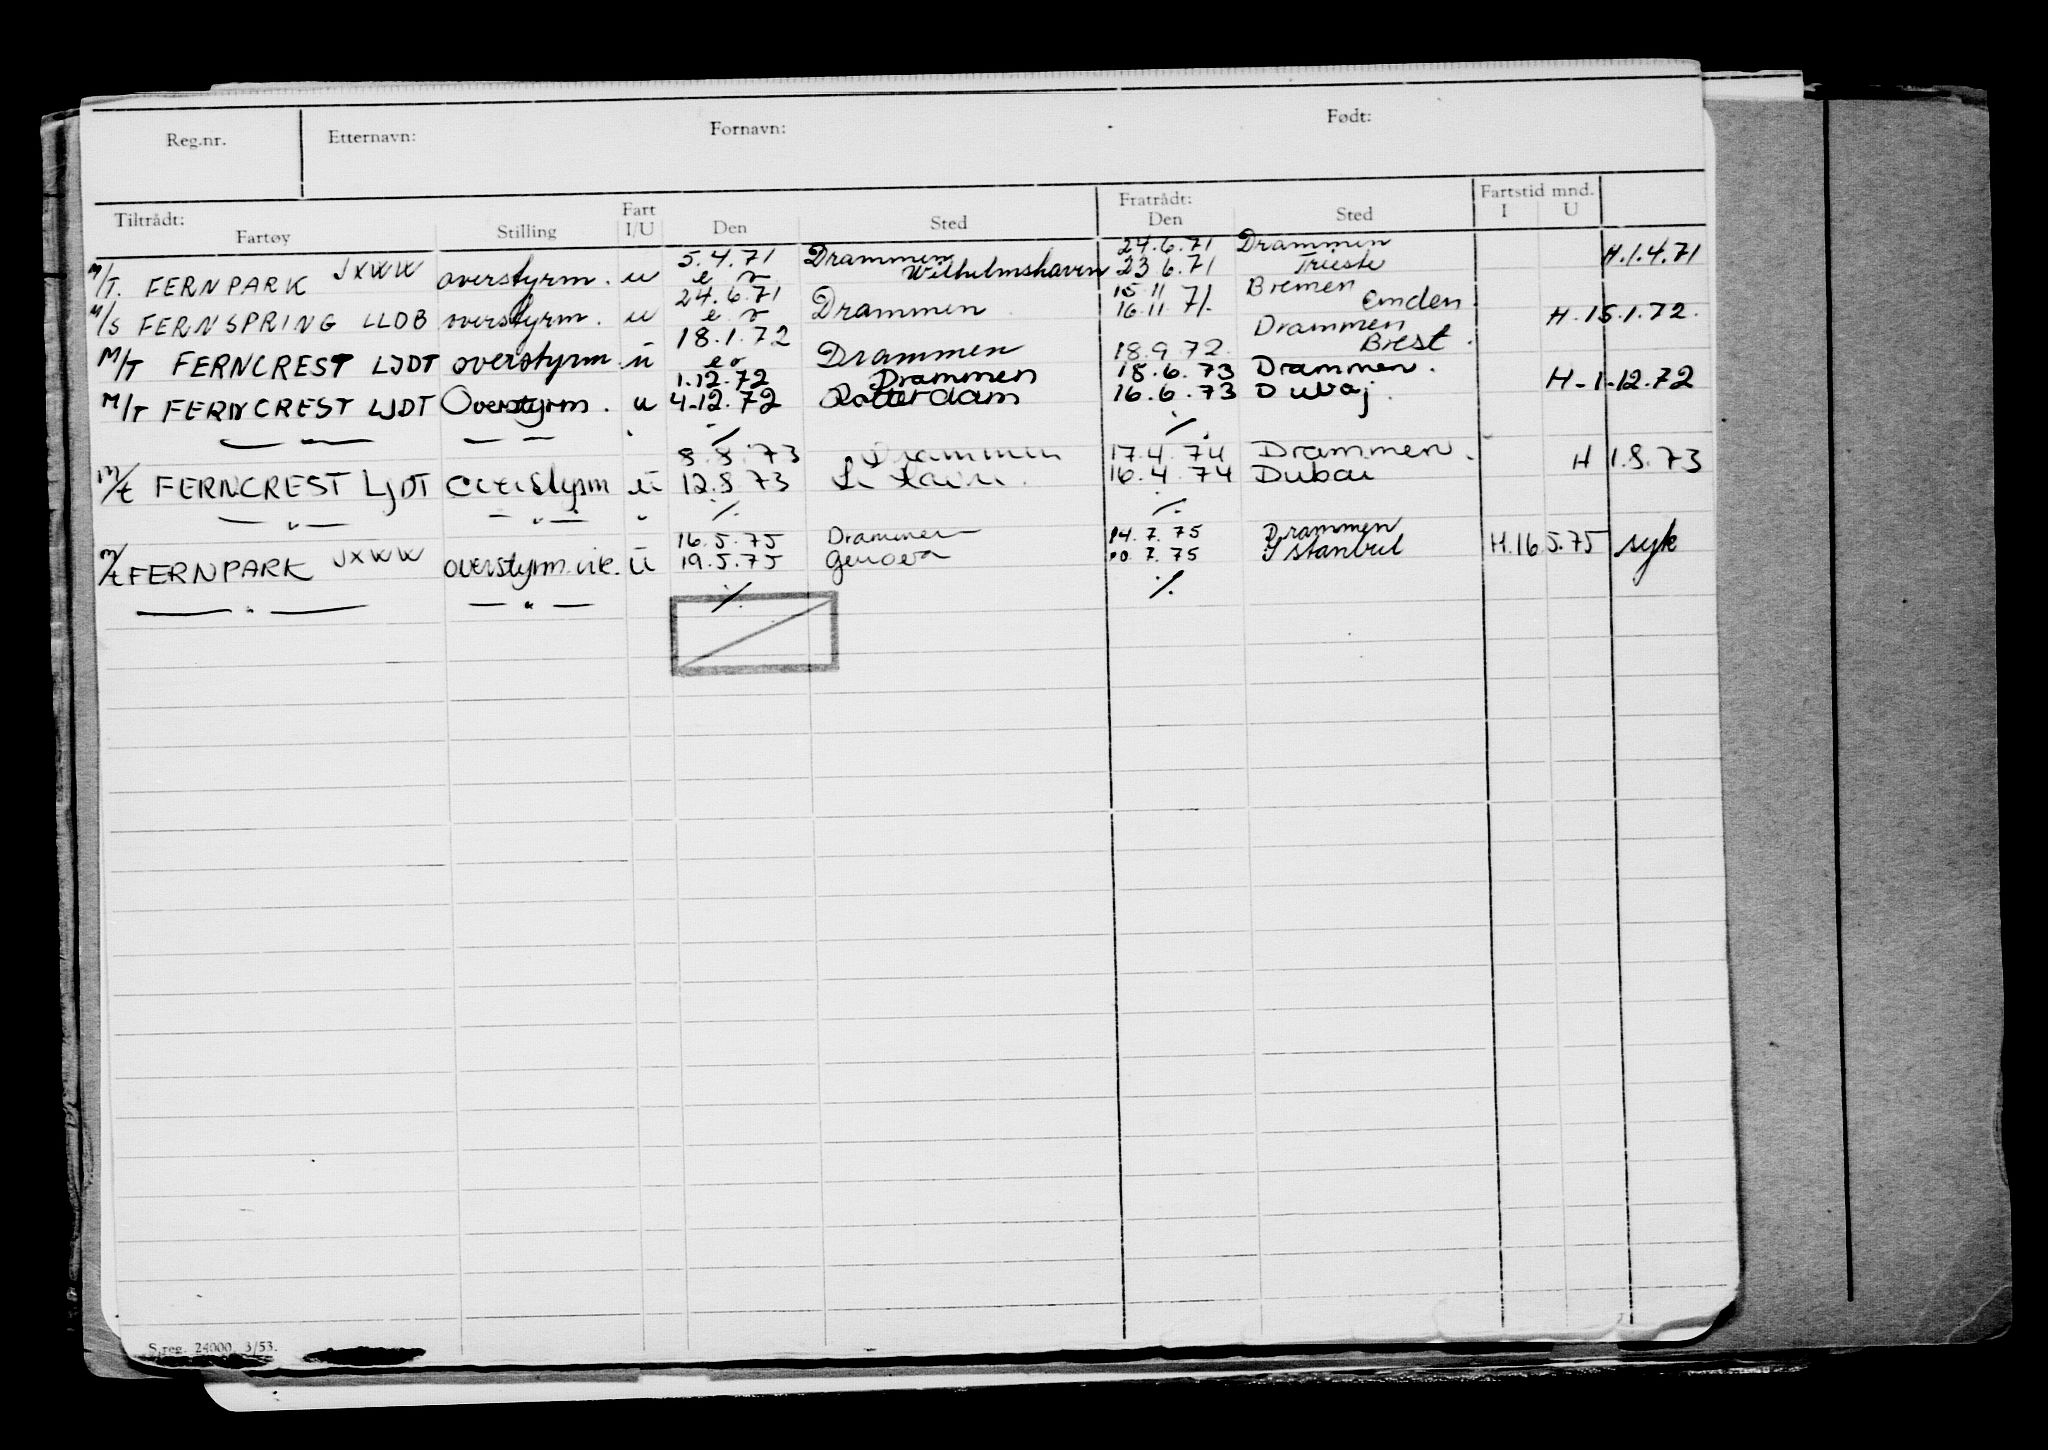 Reg.nr. Etternavn: Fornavn: Født:
Tiltrådt: Fratrådt: Fartstid mnd.
Fartøy Stilling Fart I/U Den Sted Den Sted I U
5.4.71 Drammen 24.6.71 Drammen
M/T. FERNPARK JXWW overstyrm. u Wilhelmshaven 23.6.71 Trieste H.1.4.71
24.6.71 15.11.71. Bremen
M/S FERNSPRING LLDB overstyrm. u Drammen 16.11.71. Emden H.15.1.72.
18.1.72 Drammen
M/T FERNCREST LJDT overstyrm u Drammen 18.9.72. Brest.
1.12.72 Drammen 18.6.73 Drammen.
M/T FERNCREST LJDT Overstyrm. u 4.12.72 Rotterdam 16.6.73 Dubaj. H-1-12.72
— " — — — " ./. ./.
8.8.73 Drammen 17.4.74 Drammen.
M/t FERNCREST LJDT styrm u 12.8.73 16.4.74 Dubai H 1.8.73
— " — — " — " ./. ./.
16.5.75 Drammen 14.7.75 Drammen
M/t FERNPARK JXWW overstyrm. vik. u 19.5.75 Genova 10.7.75 Istanbul H.16.5.75 syk
— " — — " — ./. ./.
S.reg. 24000. 3/53.